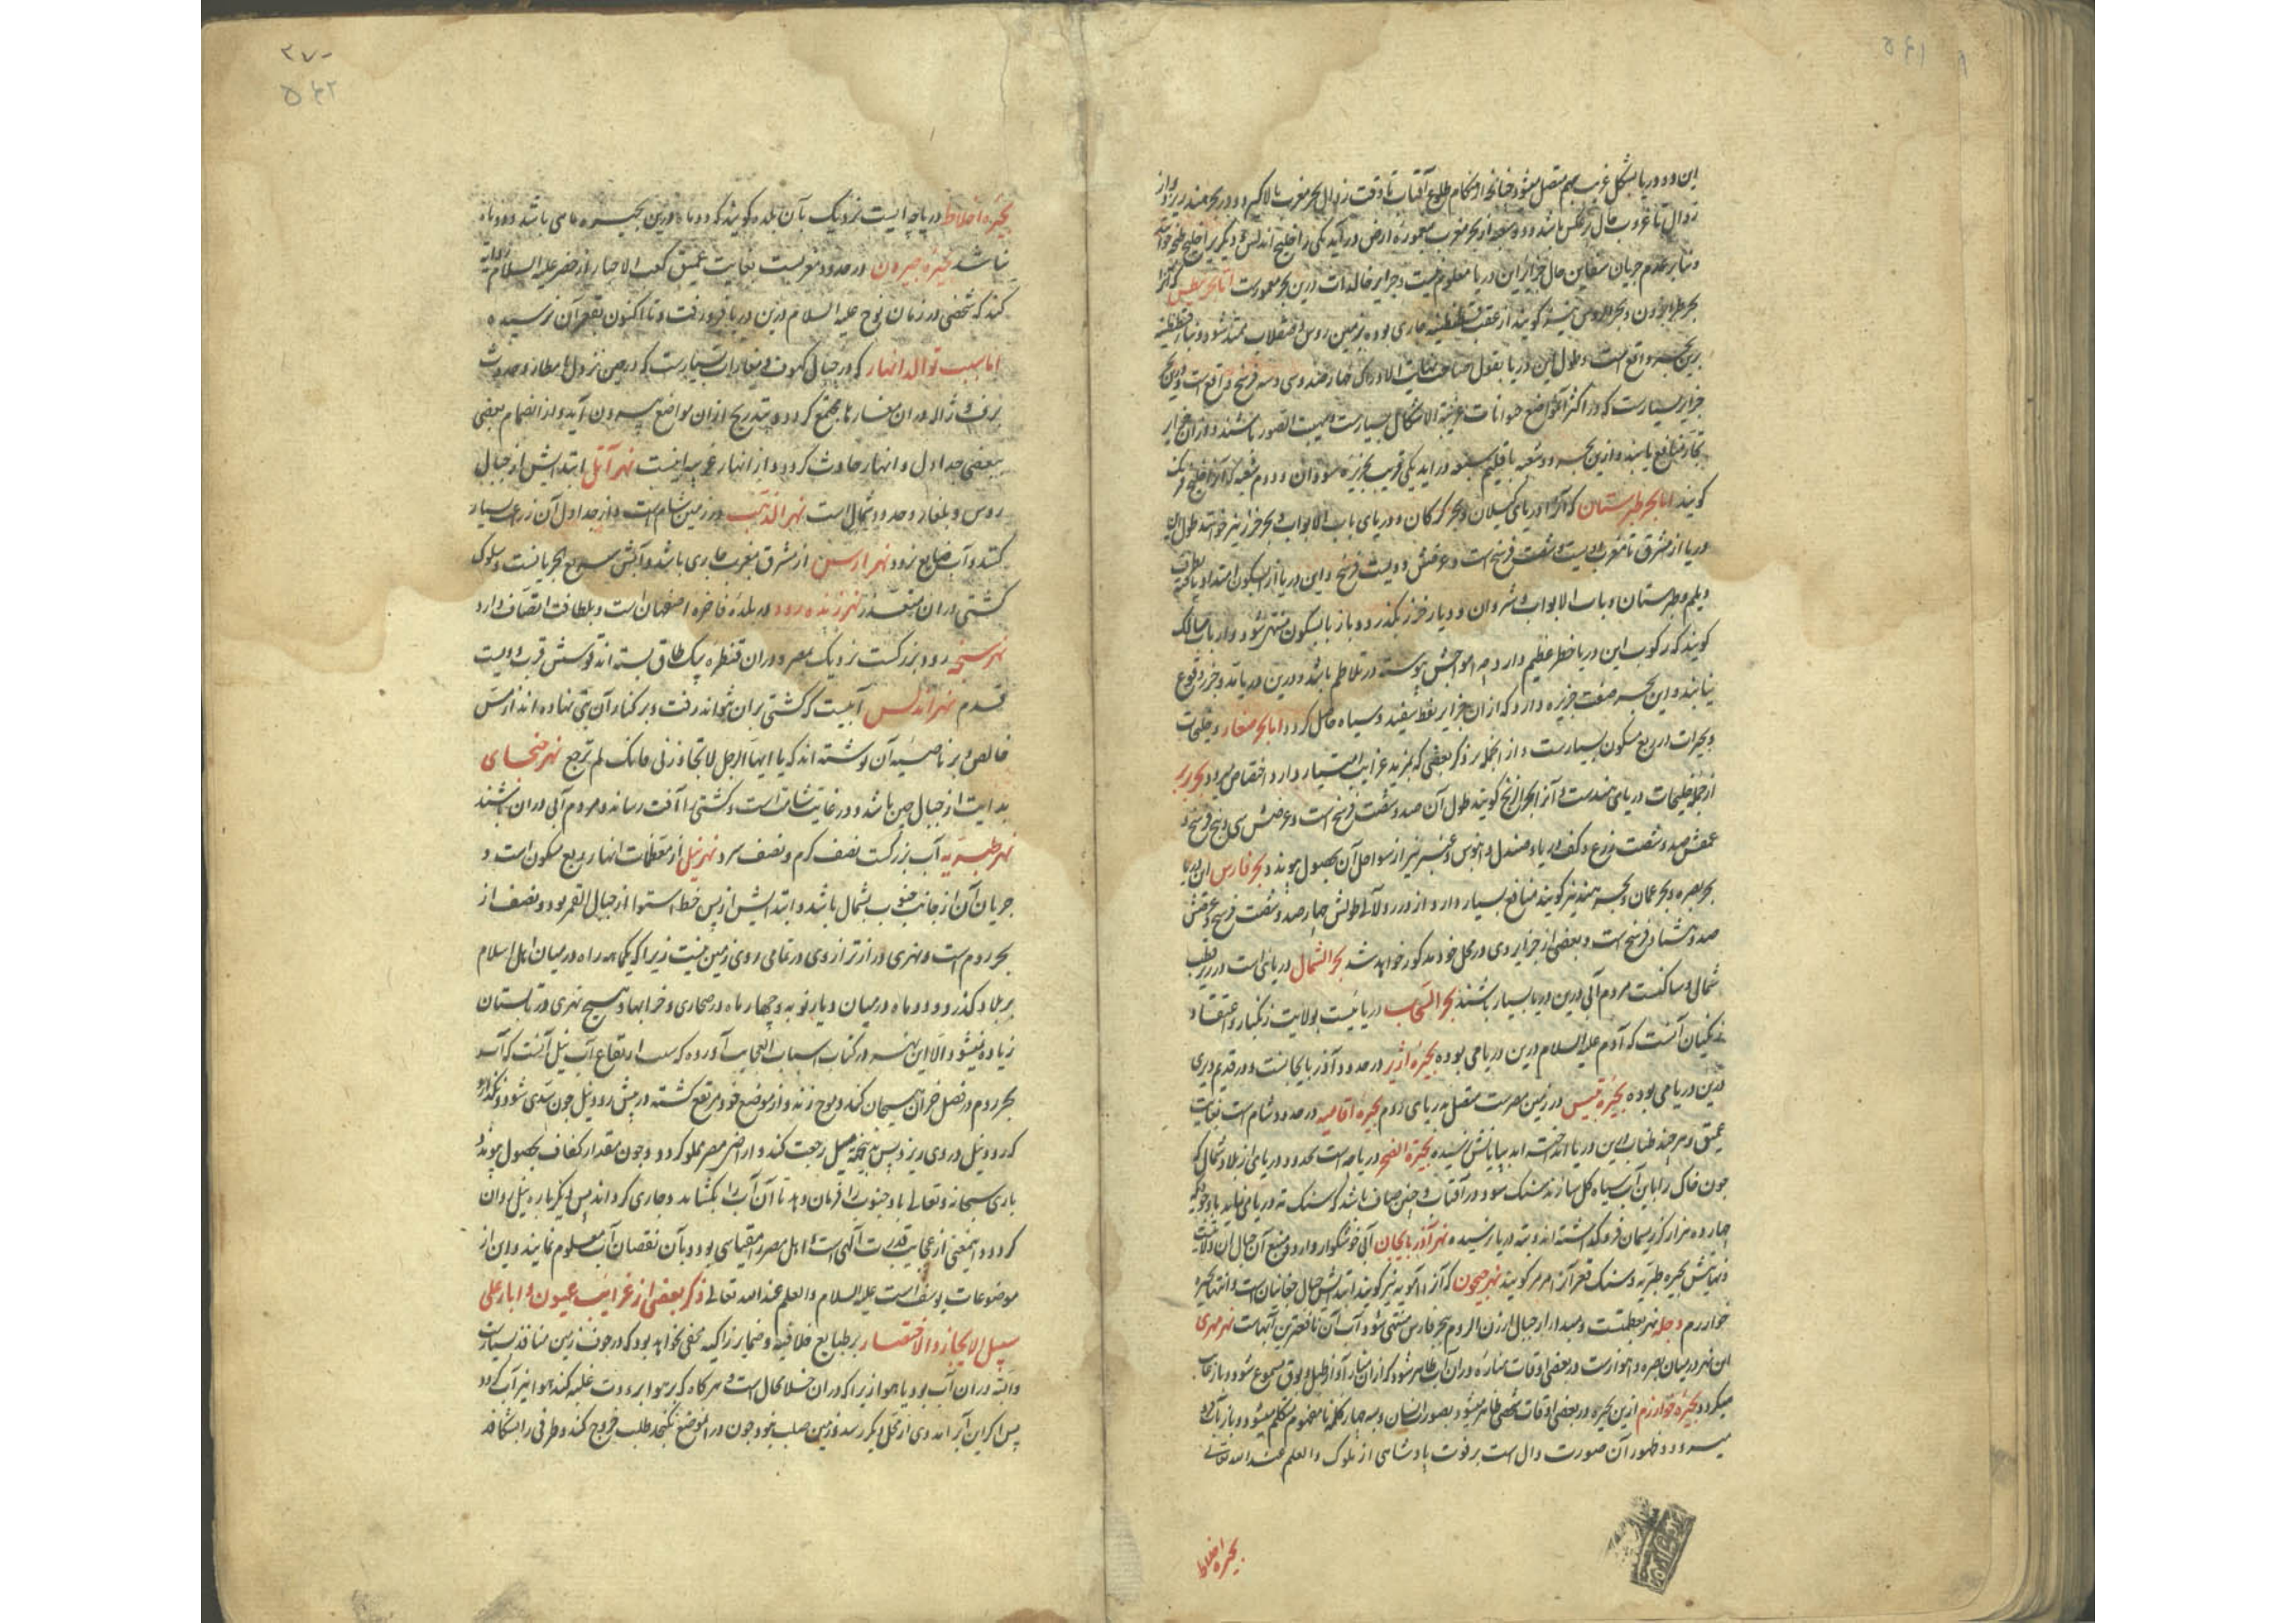 این دو دریا بشکل غریب بهم متصل میشود چنانچه از هنگام طلوع آفتاب تا وقت زوال بحر مغرب بالا گیرد و در بحر هند ریزد و از
زوال تا غروب حال برعکس باشد و دو شعبه از بحر مغرب بمعموره ارض در آید یکی را خلیج اندلس و دیگر یرا خلیج طنجه خوانند
و بنابر عدم جریان سفاین حال جزایر این دریا معلوم نیست و جزایر خالدات درین بحر معمورست اما بحر نیطس که آنرا
بحر طرابزون و بحر الروس نیز گویند از عقب قسطنطنیه جاری بوده بزمین روس و صقلاب ممتد شود و بناء قسطنطنیه
برین بحر واقع است و طول این دریا بقول صاحب الادراک چهار صد و سی و سه فرسخ واقع است و درین بحر
جزایر بسیارست که در اکثر آنمواضع حیوانات غریبة الاشکال بسیارست مهیب الصور باشند و از آن جزایر
تجار منافع یابند و ازین بحر دو شعبه باقلیم سبعه در آید یکی قریب بجزیره سودان و دوم شعبه که آنرا خلیج فرنک
گویند اما بحر طبرستان که آنرا دریای گیلان و بحر گرگان و دریای باب الابواب و بحر خزر نیز خوانند طول این
دریا از مشرق تا مغرب دویست و شصت فرسخ است و عرضش دویست فرسخ و این دریا از آبسکون امتداد یافته بطرف
دیلم و طبرستان و باب الابواب و شروان و دیار خزر بگذرد و باز بآبسکون منتهی شود و ارباب مسالک
گویند که رکوب این دریا خطر عظیم دارد چه امواجش پیوسته در تلاطم باشد و درین دریا مد و جزر وقوع
نیابد و این بحر صفت جزیره دارد که از آن جزایر نفط سفید و سیاه حاصل گردد اما بحار صغار و خلیجات
و بحیرات در ربع مسکون بسیارست و از آنجمله بر ذکر بعضی که بمزید غرایب امتیاز دارد اختصار میرود بحر بربر
از جمله خلیجات دریای هندست و آنرا بحر الزنج گویند طول آن صد و شصت فرسخ است و عرضش سی و پنج فرسخ و
عمقش صد و شصت ذرع و کف دریا و صندل و آبنوس و عنبر نیز از سواحل آن بحصول پیوندد بحر فارس این دریا را
بحر بصره و بحر عمان و بحر هند نیز گویند منافع بسیار دارد از درر و لآلی طولش چهار صد و شصت فرسخ و عرضش
صد و هشتاد فرسخ است و بعضی از جزایر وی در محل خود مذکور خواهد شد بحر الشمال دریائی است در زیر قطب
شمالی و ساکنست مردم آبی درین دریا بسیار باشند بحر السحاب دریائیست بولایت زنگبار و اعتقاد
زنگیان آنست که آدم علیه السلام درین دریا می بوده بحیره ارژیر در حدود آذربایجانست و در قدیم دیری
درین دریا می بوده بحیره تنیس در زمین مصرست متصل بدریای روم بحیره افامیه در حدود شام است بغایت
عمیق و هر چند طناب این دریا انداخته اند بپایانش نرسیده بحیرة الفتح دریاچه است بحدود دریا می از بلاد شمال که
چون خاک را باین آب سیاه گل سازند سنگ شود و در آفتاب چنین صاف باشد که سنگ ته دریا می نماید با وجودیکه
چهارده هزار گز ریسمان فرو گذاشته اند و بته دریا نرسیده نهر آذربایجان آبی خوشگوار دارد و منبع آن جبال آن ولایتست
و نهایتش بحیره طبریه و سنگ قعر آنرا مرمر گویند نهر جیحون که آنرا آمویه نیز گویند ابتدایش جبال چغانیانست و انتها بحیره
خوارزم دجله نهر معظمست و مبداء از جبال ارزن الروم ببحر فارس منتهی شود و آب آن نافعترین آبهاست نهر مهری
این نهر در میان بصره و اهوازست در بعضی اوقات مناره در آن آب ظاهر شود که از آن منار آواز طبل و بوق مسموع شود و باز غایب
میگردد بحیره خوارزم ازین بحیره در بعضی اوقات شخصی ظاهر میشود بصورت انسان و سه چهار کلمه نامفهوم متکلم میشود و باز بآب فرو
میرود و ظهور آن صورت دال است بر فوت پادشاهی از ملوک و العلم عند الله تعالی
بحیره اخلاط
۲۷۰
۵۴۲
بحیره اخلاط دریاچه ایست نزدیک بآن بلده گویند که دو ماه درین بحیره ماهی باشد و ده ماه
نباشد بحیره جیرون در حدود مغربست بغایت عمیق کعب الاحبار از خضر علیه السلام روایة
کند که شخصی در زمان نوح علیه السلام درین دریا فرو رفت و تا اکنون بقعر آن نرسیده
اما سبب توالد انهار که در جبال کهوف و مغارات بسیارست که در حین نزول امطار و حدوث
برف و ژاله در آن مغارها مجتمع گردد و بتدریج از آن مواضع بیرون آید و از انضمام بعضی
ببعضی جداول و انهار حادث گردد و از انهار غریبه اینست نهر آتل ابتدایش از جبال
روس و بلغار و حدود شمال است نهر الذهب در زمین شام است و از جداول آن زرع بسیار
کنند و آب ضایع نرود نهر ارس از مشرق بمغرب جاری باشد و آبش سریع الجریانست و سلوک
کشتی در آن متعذر نهر زنده رود در بلده فاخره اصفهان است و بلطافت اتصاف دارد
نهر سنجه رود بزرگست نزدیک مصر و در آن قنطره یک طاق بسته اند قوسش قریب دویست
قدم نهر اندلس آبیست که کشتی بر آن نتواند رفت و بر کنار آن بتی نهاده اند از مس
خالص و بر ناصیه آن نوشته اند که یا ایها الرجل لا تجاوزنی فانک لم ترجع نهر صنحای
بدایت از جبال چین باشد و در غایت شتابست و کشتی را آفت رساند و مردم آبی در آن باشند
نهر طبریه آب بزرگست نصف گرم و نصف سرد نهر نیل از معظمات انهار ربع مسکون است و
جریان آن از جانب جنوب بشمال باشد و ابتدایش از پس خط استوا از جبال القمر بود و نصف از
بحر روم است و نهری درازتر از وی در تمامی روی زمین نیست زیرا که یکماهه راه در میان اهل اسلام
بر بلاد گذرد و دو ماه در میان دیار نوبه و چهار ماه در صحاری و خرابها و هیچ نهری در تابستان
زیاده نمیشود الا این نهر و در کتاب اسباب العجایب آورده که سبب ارتفاع آب نیل آنست که آب
بحر روم در فصل خزان هیجان کند و موج زند و از موضع خود مرتفع گشته در پیش رود نیل چون سدی شود و نگذارد
که رود نیل در وی ریزد پس بالضرورة نیل رجعت کند و اراضی مصر مملو گردد و چون مقدار کفاف بحصول پیوندد
باری سبحانه و تعالی باد جنوب را فرمان دهد تا آن آب را بگشاید و جاری گرداند پس دیگر باره نیل روان
گردد و اینمعنی از عجایب قدرت آلهی است و اهل مصر را مقیاسی بود و بآن نقصان آب معلوم نمایند و این از
موضوعات یوسف است علیه السلام والعلم عند الله تعالی ذکر بعضی از غرایب عیون و ابار علی
سبیل الایجاز و الاختصار بر طبایع خلاقیه و ضمایر زاکیه مخفی نخواهد بود که در جوف زمین منافذ بسیارست
و البته در آن آب بود یا هوا زیرا که در آن خلا محال است و هر گاه که بر هوا برودت غلبه کند هوا نیز آب گردد
پس اگر این آبرا مددی از محل دیگر رسد و زمین صلب نبود چون در آنموضع نگنجد طلب خروج کند و طرفی را بشکافد